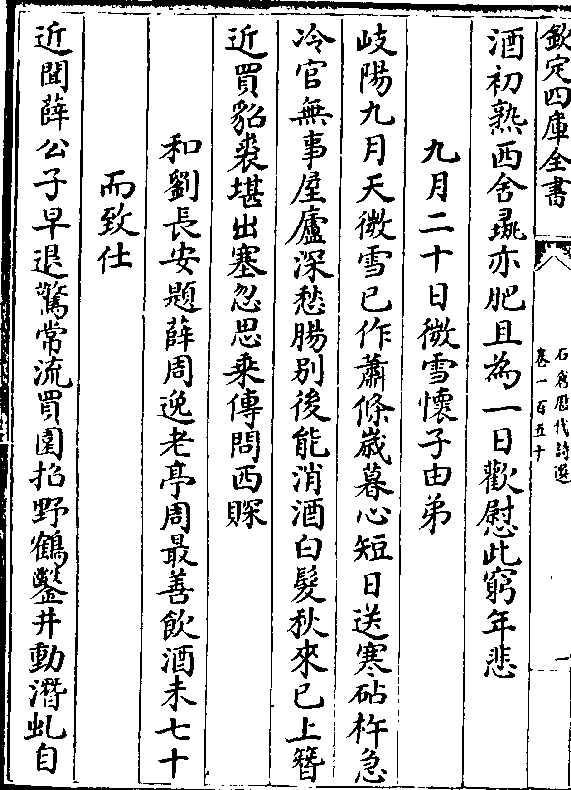 欽定四庫全書
石倉歷代詩選
卷一百五十
一
酒初熟西舍彘亦肥且為一日歡慰此窮年悲
九月二十日微雪懷子由弟
岐陽九月天微雪已作蕭條歲暮心短日送寒砧杵急
冷官無事屋廬深愁腸別後能消酒白髮秋來已上簪
近買貂裘堪出塞忽思乗傳問西賝
和劉長安題薛周逸老亭周最善飲酒未七十
而致仕
近聞薛公子早退驚常流買園招野鶴鑿井動潛虬自